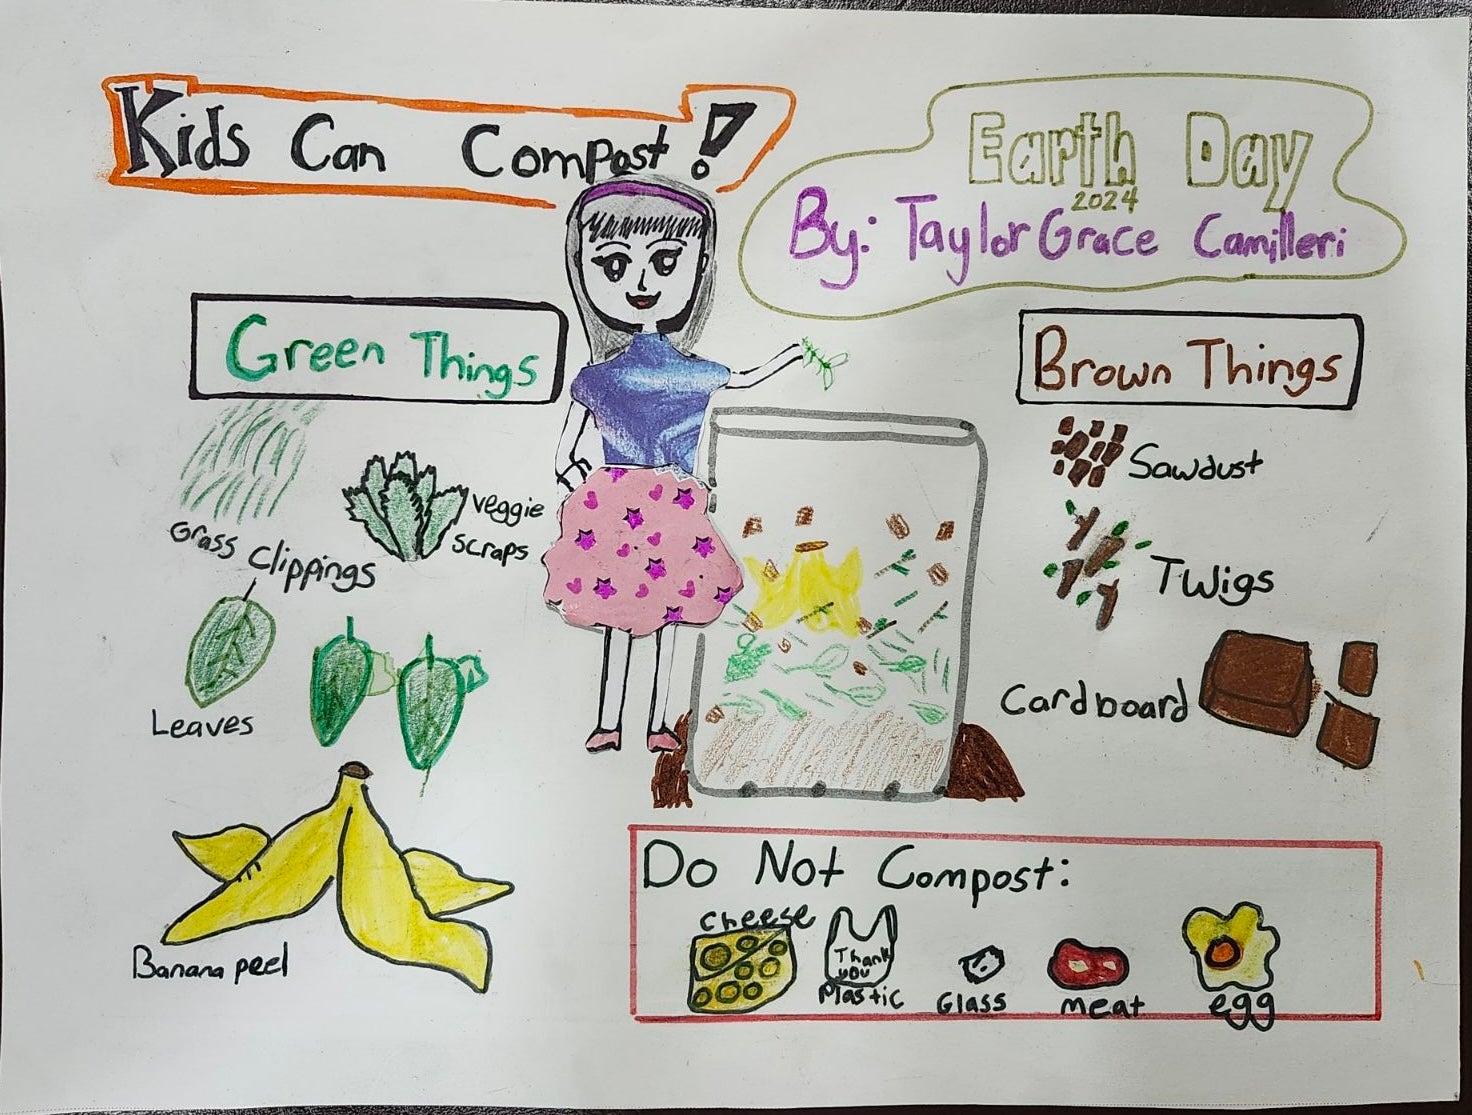 Kids Can Compost!
Earth Day
2024
By: Taylor Grace Camilleri
Green Things
Grass Clippings
veggie
scraps
Leaves
Banana peel
Brown Things
Sawdust
Twigs
Cardboard
Do Not Compost:
cheese
Thank
you
Plastic
Glass
meat
egg